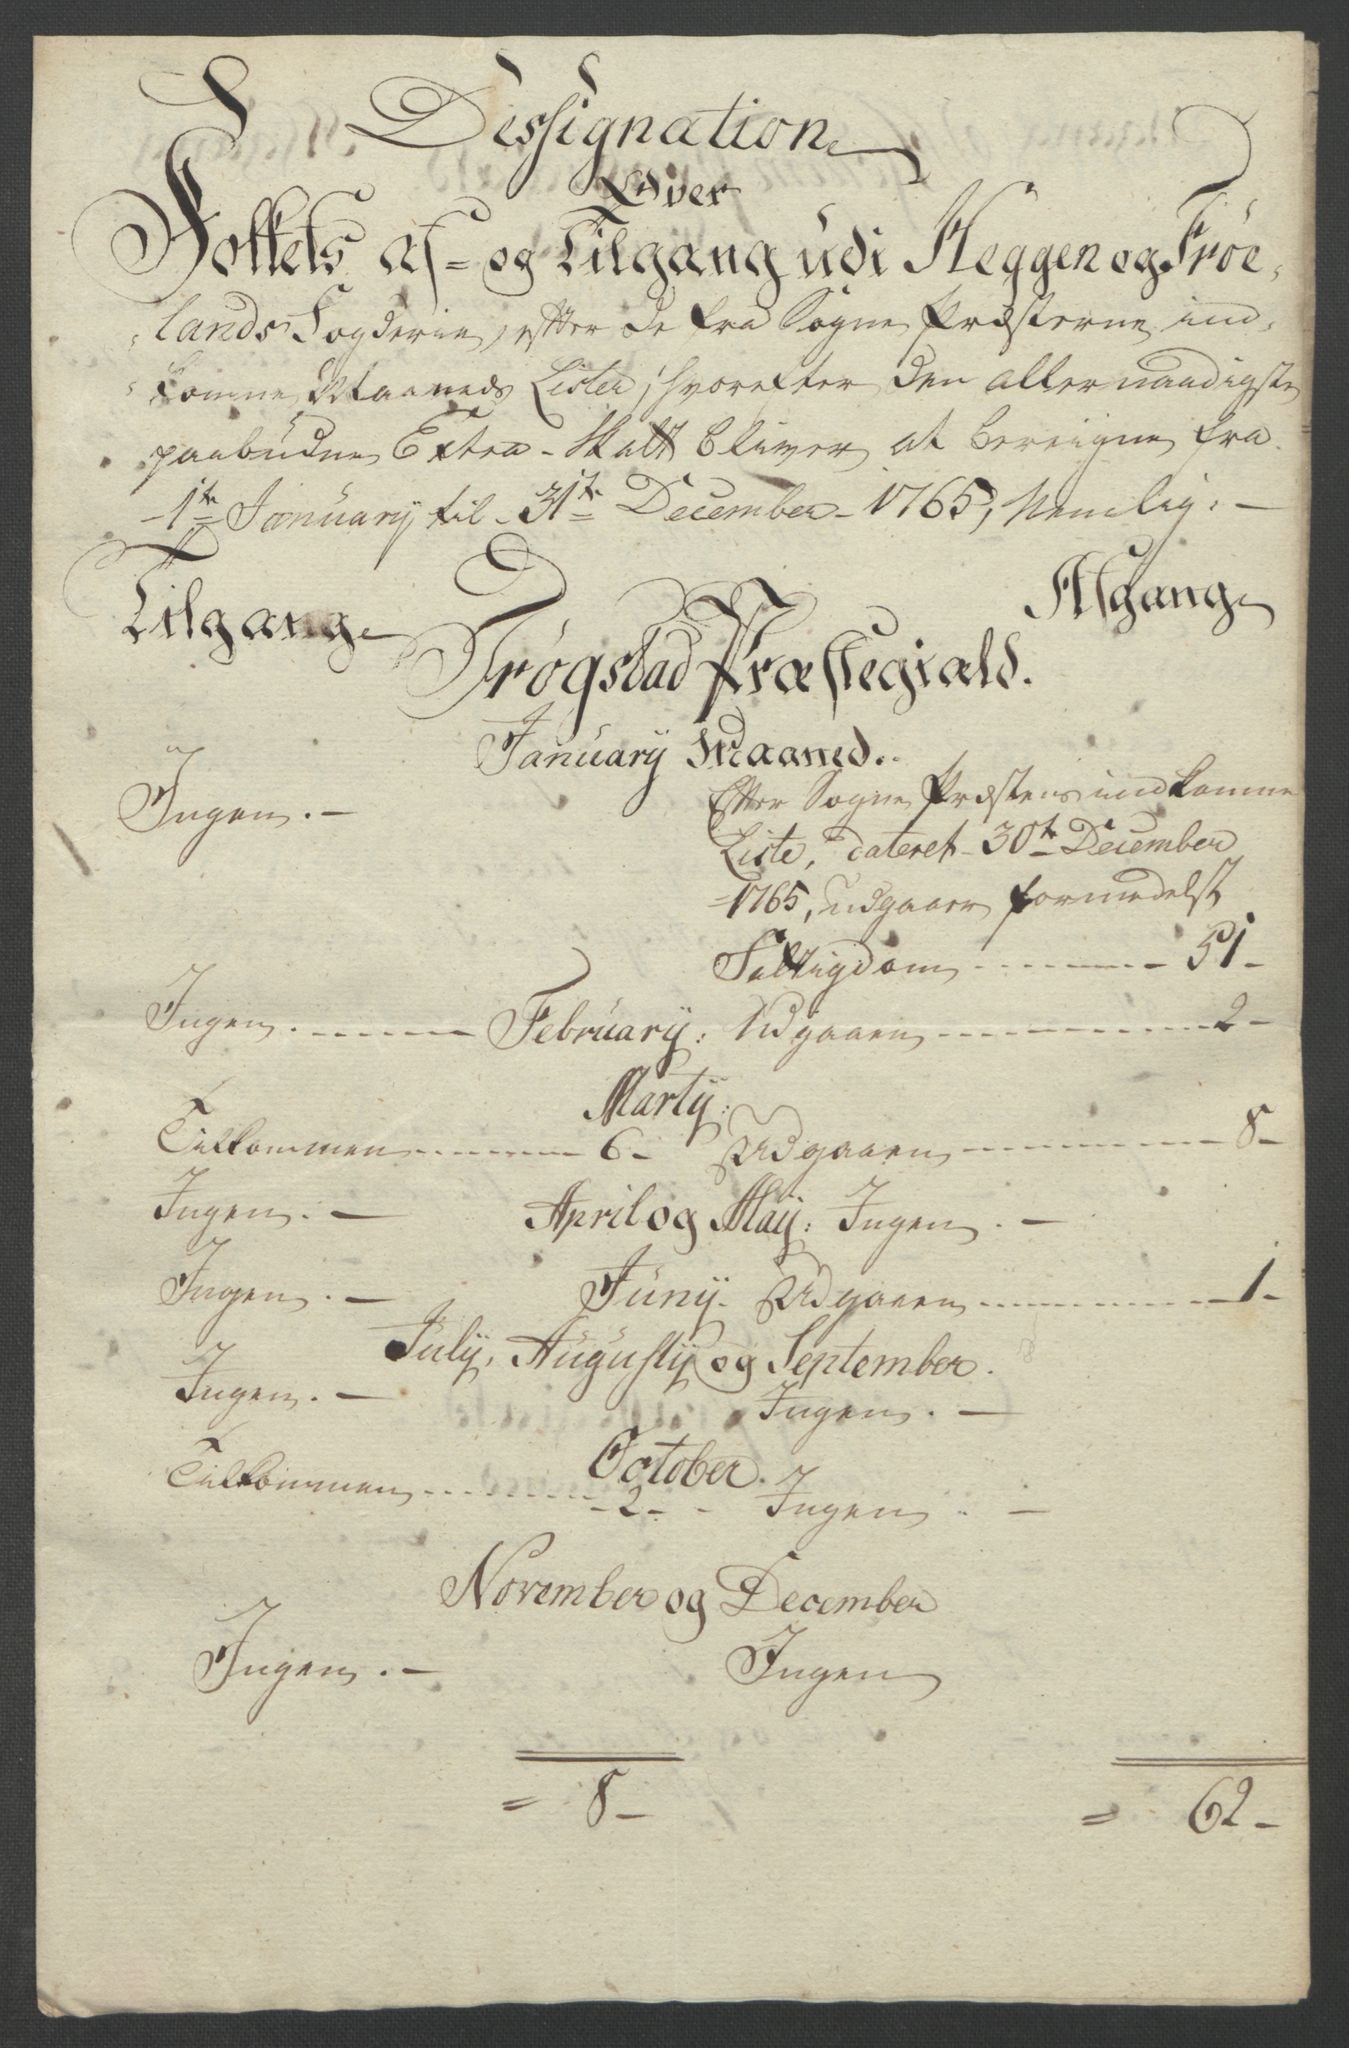 Dessignation
Over
Folkets af- og Tilgang udi Heggen og Frøe-
lands Fogderie, efter de fra Sogne Præsterne ind-
komne Maaneds Lister, hvorefter den allernaadigste
paabudne Extra-Skatt bliver at bereigne fra
1te January til 31te December 1765, Nemlig: —
Tilgang Afgang
Trøgstad Præstegiæld.
January Maaned.
Ingen. — Efter Sogne Præstens indkomne
Liste, dateret 30te December
1765, udgaaer formedelst
Fattigdom - - - - 51 -
Ingen. - - - - February: Udgaaen - - - - 2 -
Marty:
Tilkommen - - - - 6 - Udgaaen - - - - 8 -
Ingen. — April og Maij: Ingen. —
Ingen. — Juny. Udgaaen - - - - 1 -
July, Augusty og September.
Ingen. — Ingen. —
October.
Tilkommen - - - - 2 - - Ingen. —
November og December
Ingen. — Ingen
= 8 - = 62 -